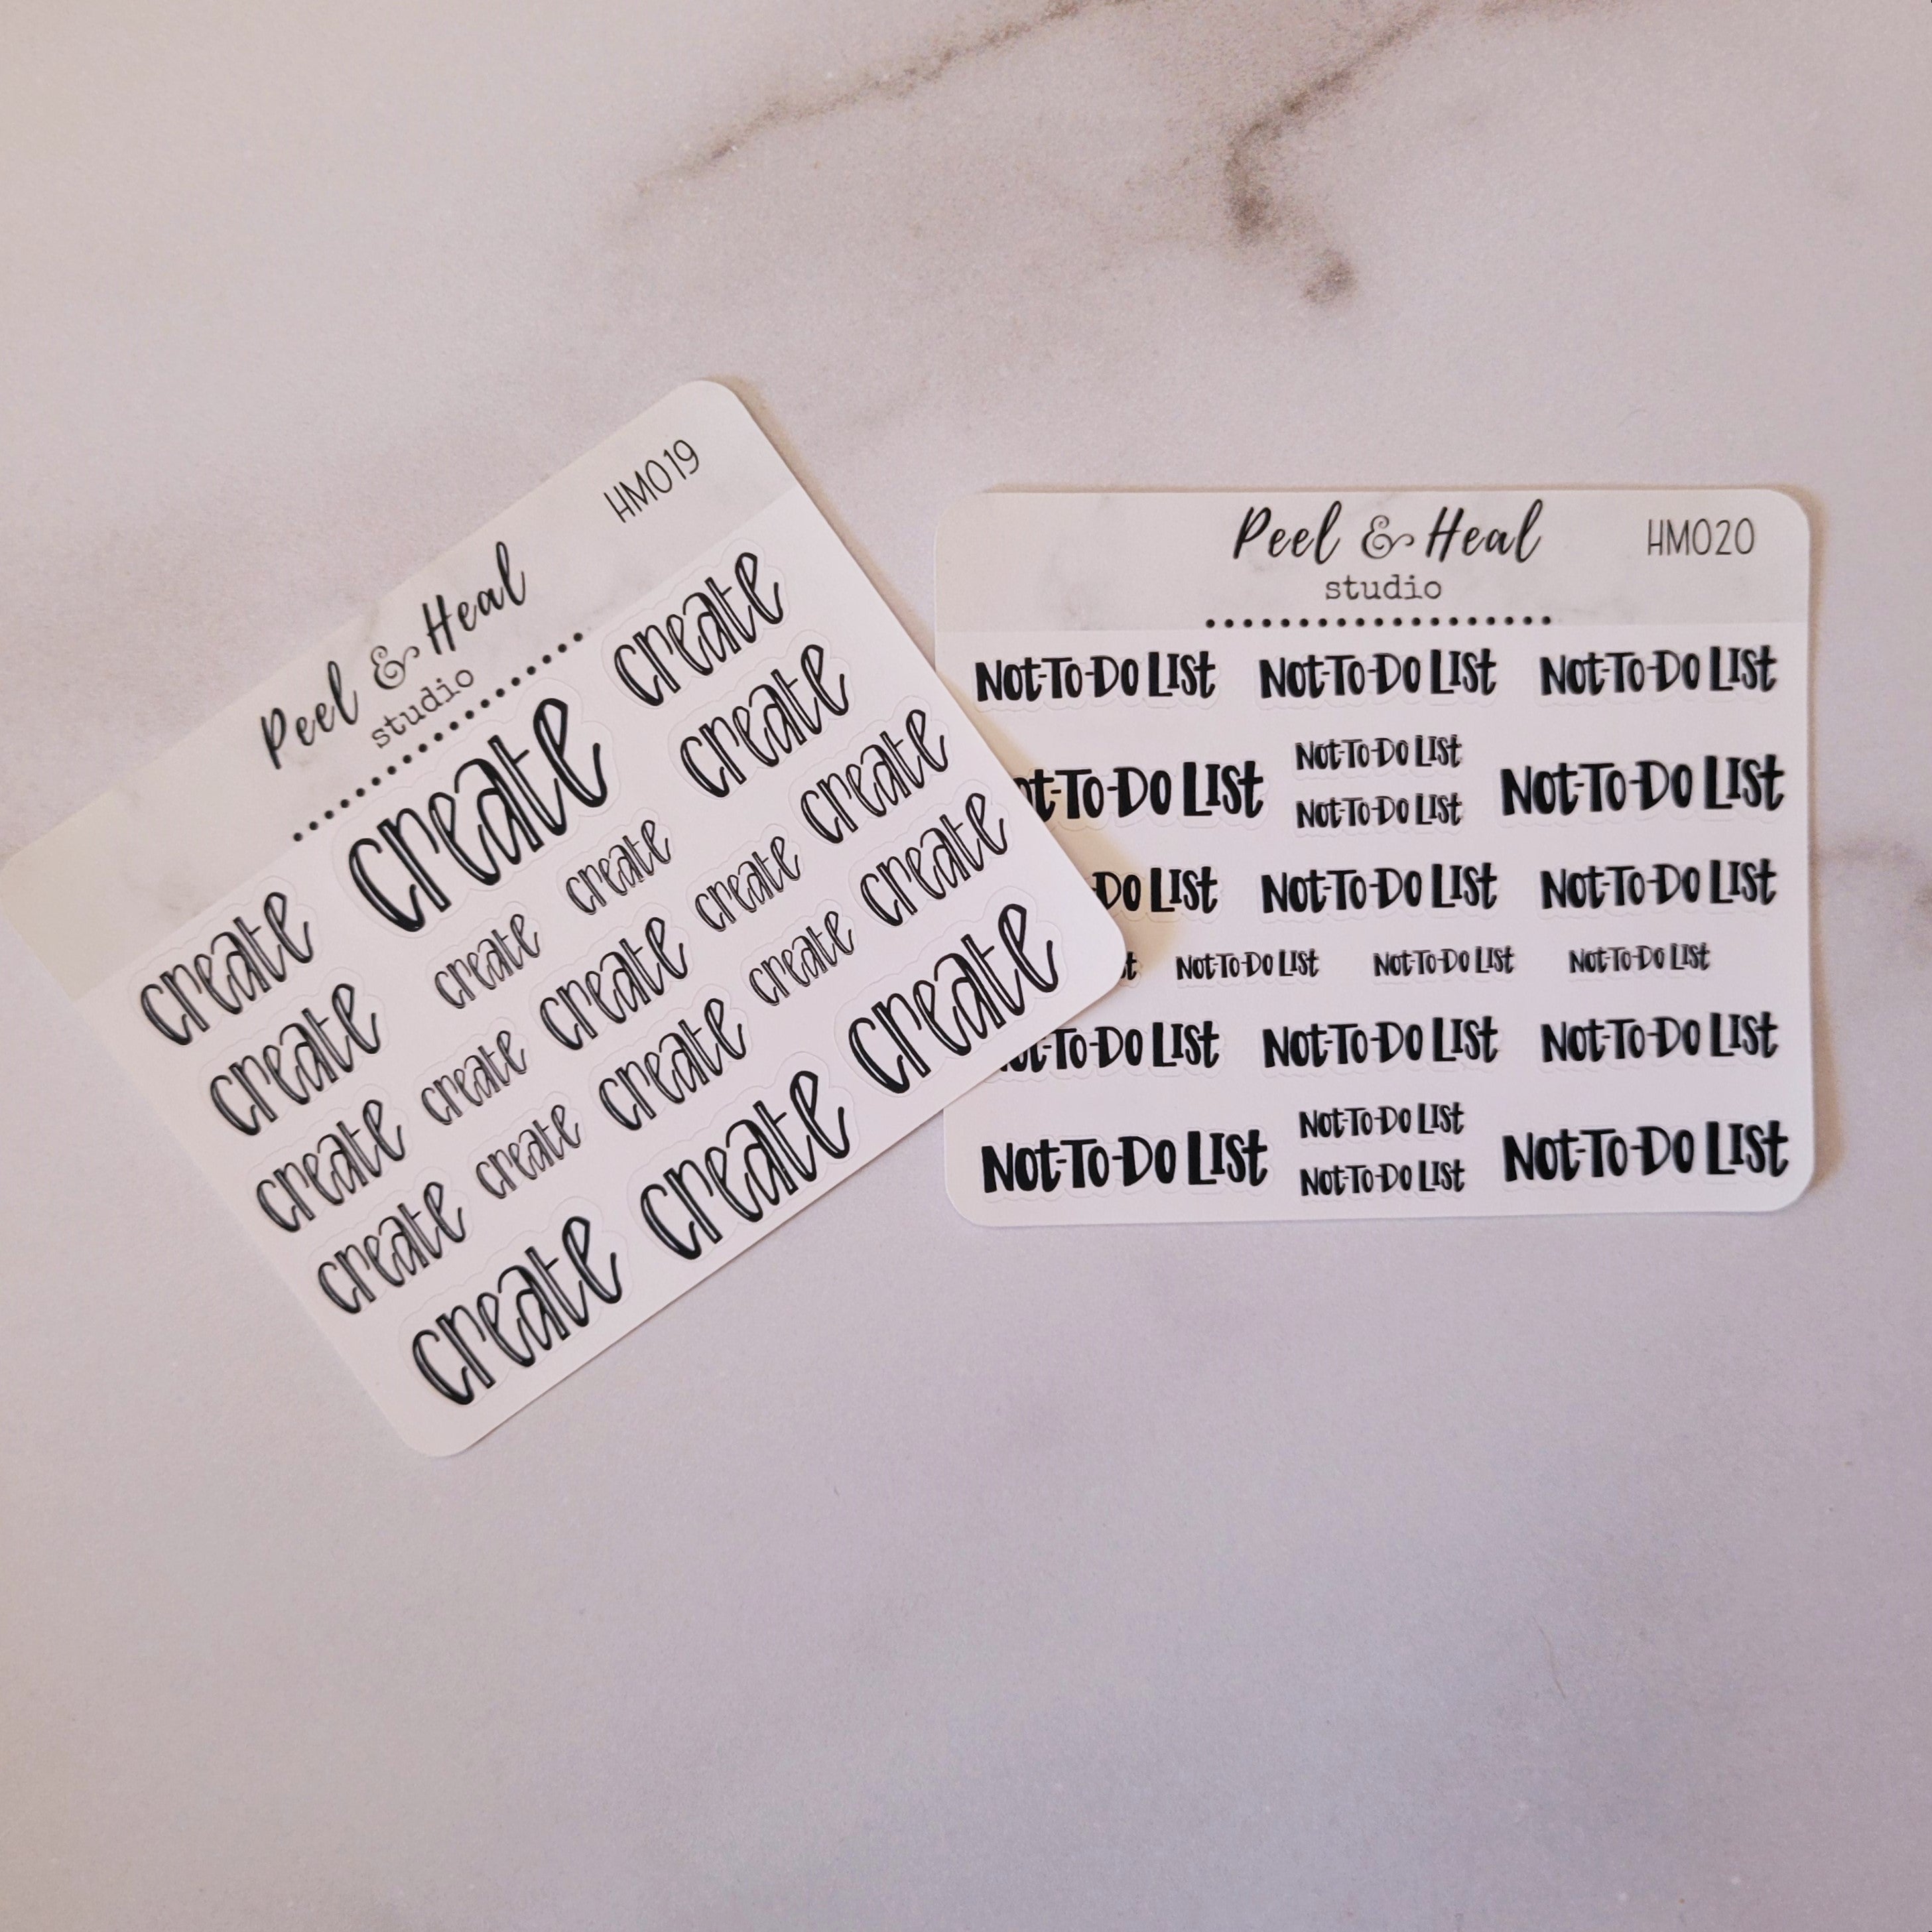 Peel & Heal
studio
HM019
create create create
create create create create
create create create create create
create create create create create
create create create
Peel & Heal
studio
HM020
Not-To-Do List Not-To-Do List Not-To-Do List
Not-To-Do List
To-Do List Not-To-Do List
Not-To-Do List
Do List Not-To-Do List Not-To-Do List
Not-To-Do List Not-To-Do List Not-To-Do List
To-Do List Not-To-Do List Not-To-Do List
Not-To-Do List
Not-To-Do List Not-To-Do List
Not-To-Do List